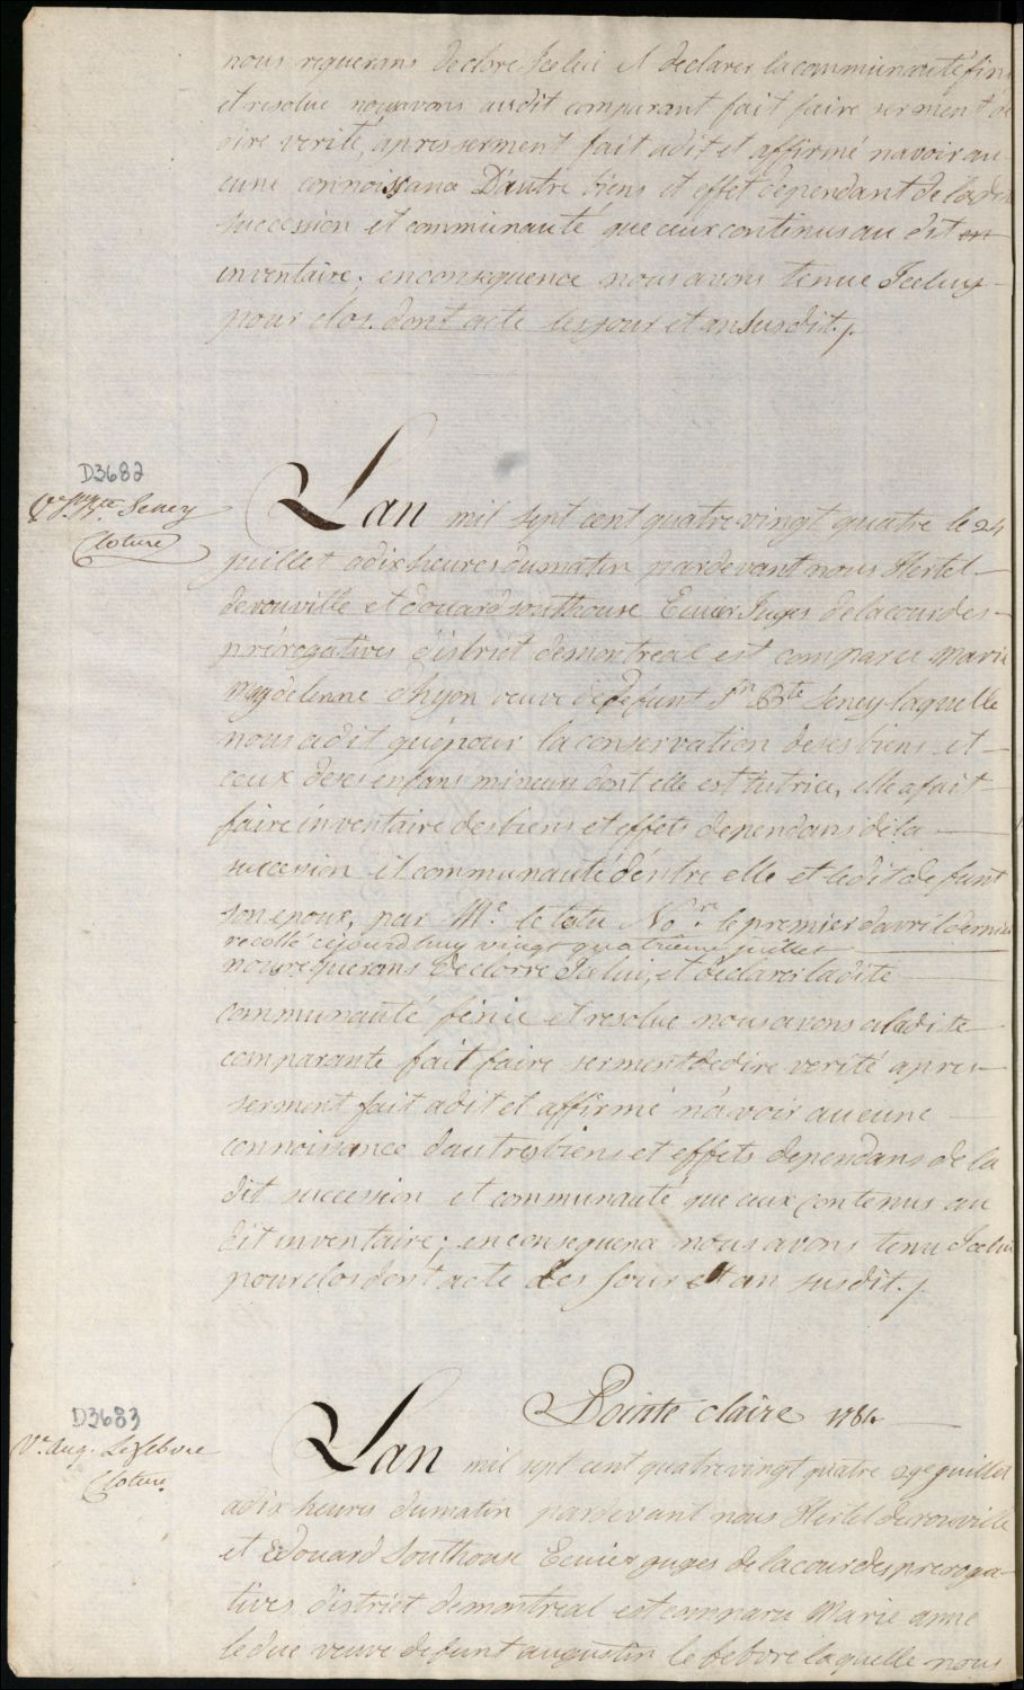 nous requerans declore Icelui et declarer la communauté fini
et resolue nous avons audit comparant fait faire serment de
dire verité, apres serment fait adit et affirmé navoir au
cune connoissance D'autre biens et effet dependant de ladite
succession et communauté que ceux continus au dit
inventaire; enconsequence nous avons tenue Iceluy
pour clos. dont acte les jour et an susdit./.
D3682
Ve. Jn. Bte. Seney
Cloture
Lan mil sept cent quatrevingt quatre le 24
juillet adix heures dumatin pardevant nous Hertel
derouville et Edouard southouse Ecuier Juges delacour des
prérogatives district demontreal est comparue Marie
Magdelenne chyon veuve de defunt Jn Bte Seney laquelle
nous adit que pour la conservation deses biens et
ceux deses enfans mineurs dont elle est tutrice, elle afait
faire inventaire des biens et effets dependans dela
succession et communauté déntre elle et ledit defunt
son epoux, par Me. le tatu Nore. le premier davril dernier
recollé cejourdhuy vingt quatrieme juillet
nous requerans declorre Icelui, et declarer ladite
communauté finie et resolue nous avons aladite
comparante fait faire serment de dire verité apres
serment fait adit et affirmé n'avoir aucune
connoissance dautres biens et effets dependans de la
dit succession et communauté que ceux contenus au
dit inventaire; en consequence nous avons tenu Icelui
pour clos dont acte les jour et an susdit./.
Pointe claire 1784
D3683
Ve. Aug. Lefebvre
Cloture.
Lan mil sept cent quatrevingt quatre 29e juillet
adix heures dumatin pardevant nous Hertel derouville
et Edouard Southouse Ecuier juges delacour des preroga-
tives district demontreal est comparu Marie anne
leduc veuve defunt augustin lefebvre laquelle nous